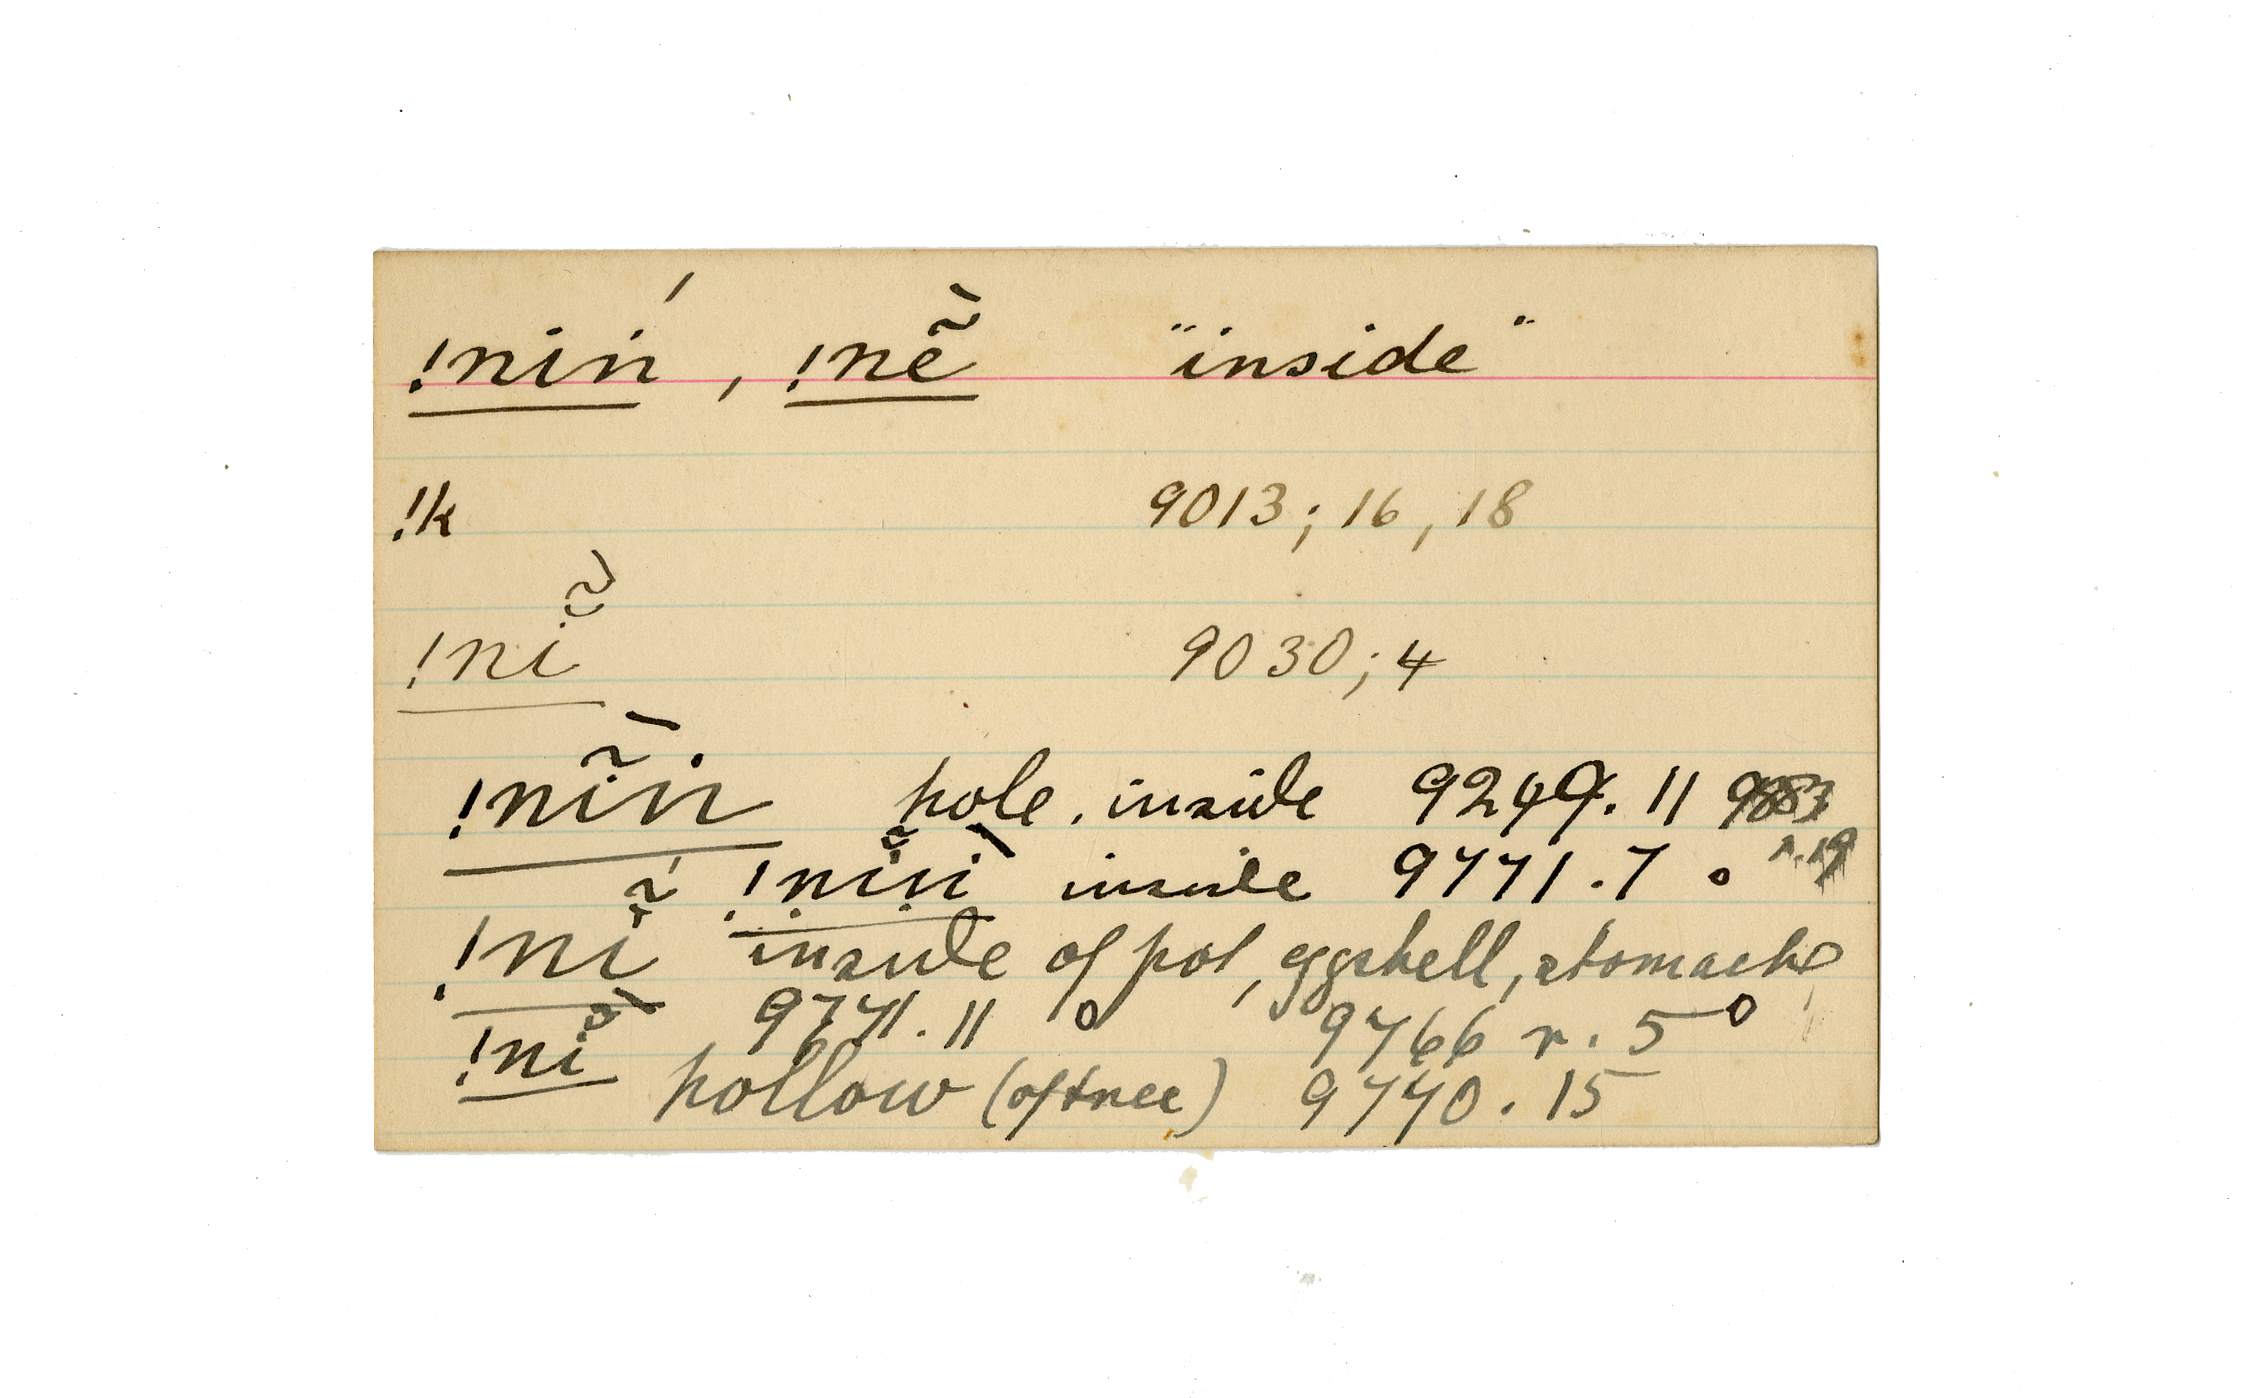 !niṅ́, !nẽ̀ "inside"
!k 9013; 16, 18
!nĩ 9030; 4
!nĩ̀ṅ hole, inside 9249. 11
!nĩ̀ṅ inside 9771. 7 o
!nĩ́ inside of pot, eggshell, stomach
9771. 11 o 9766 r. 5 o
!nĩ̀ hollow (of tree) 9770. 15